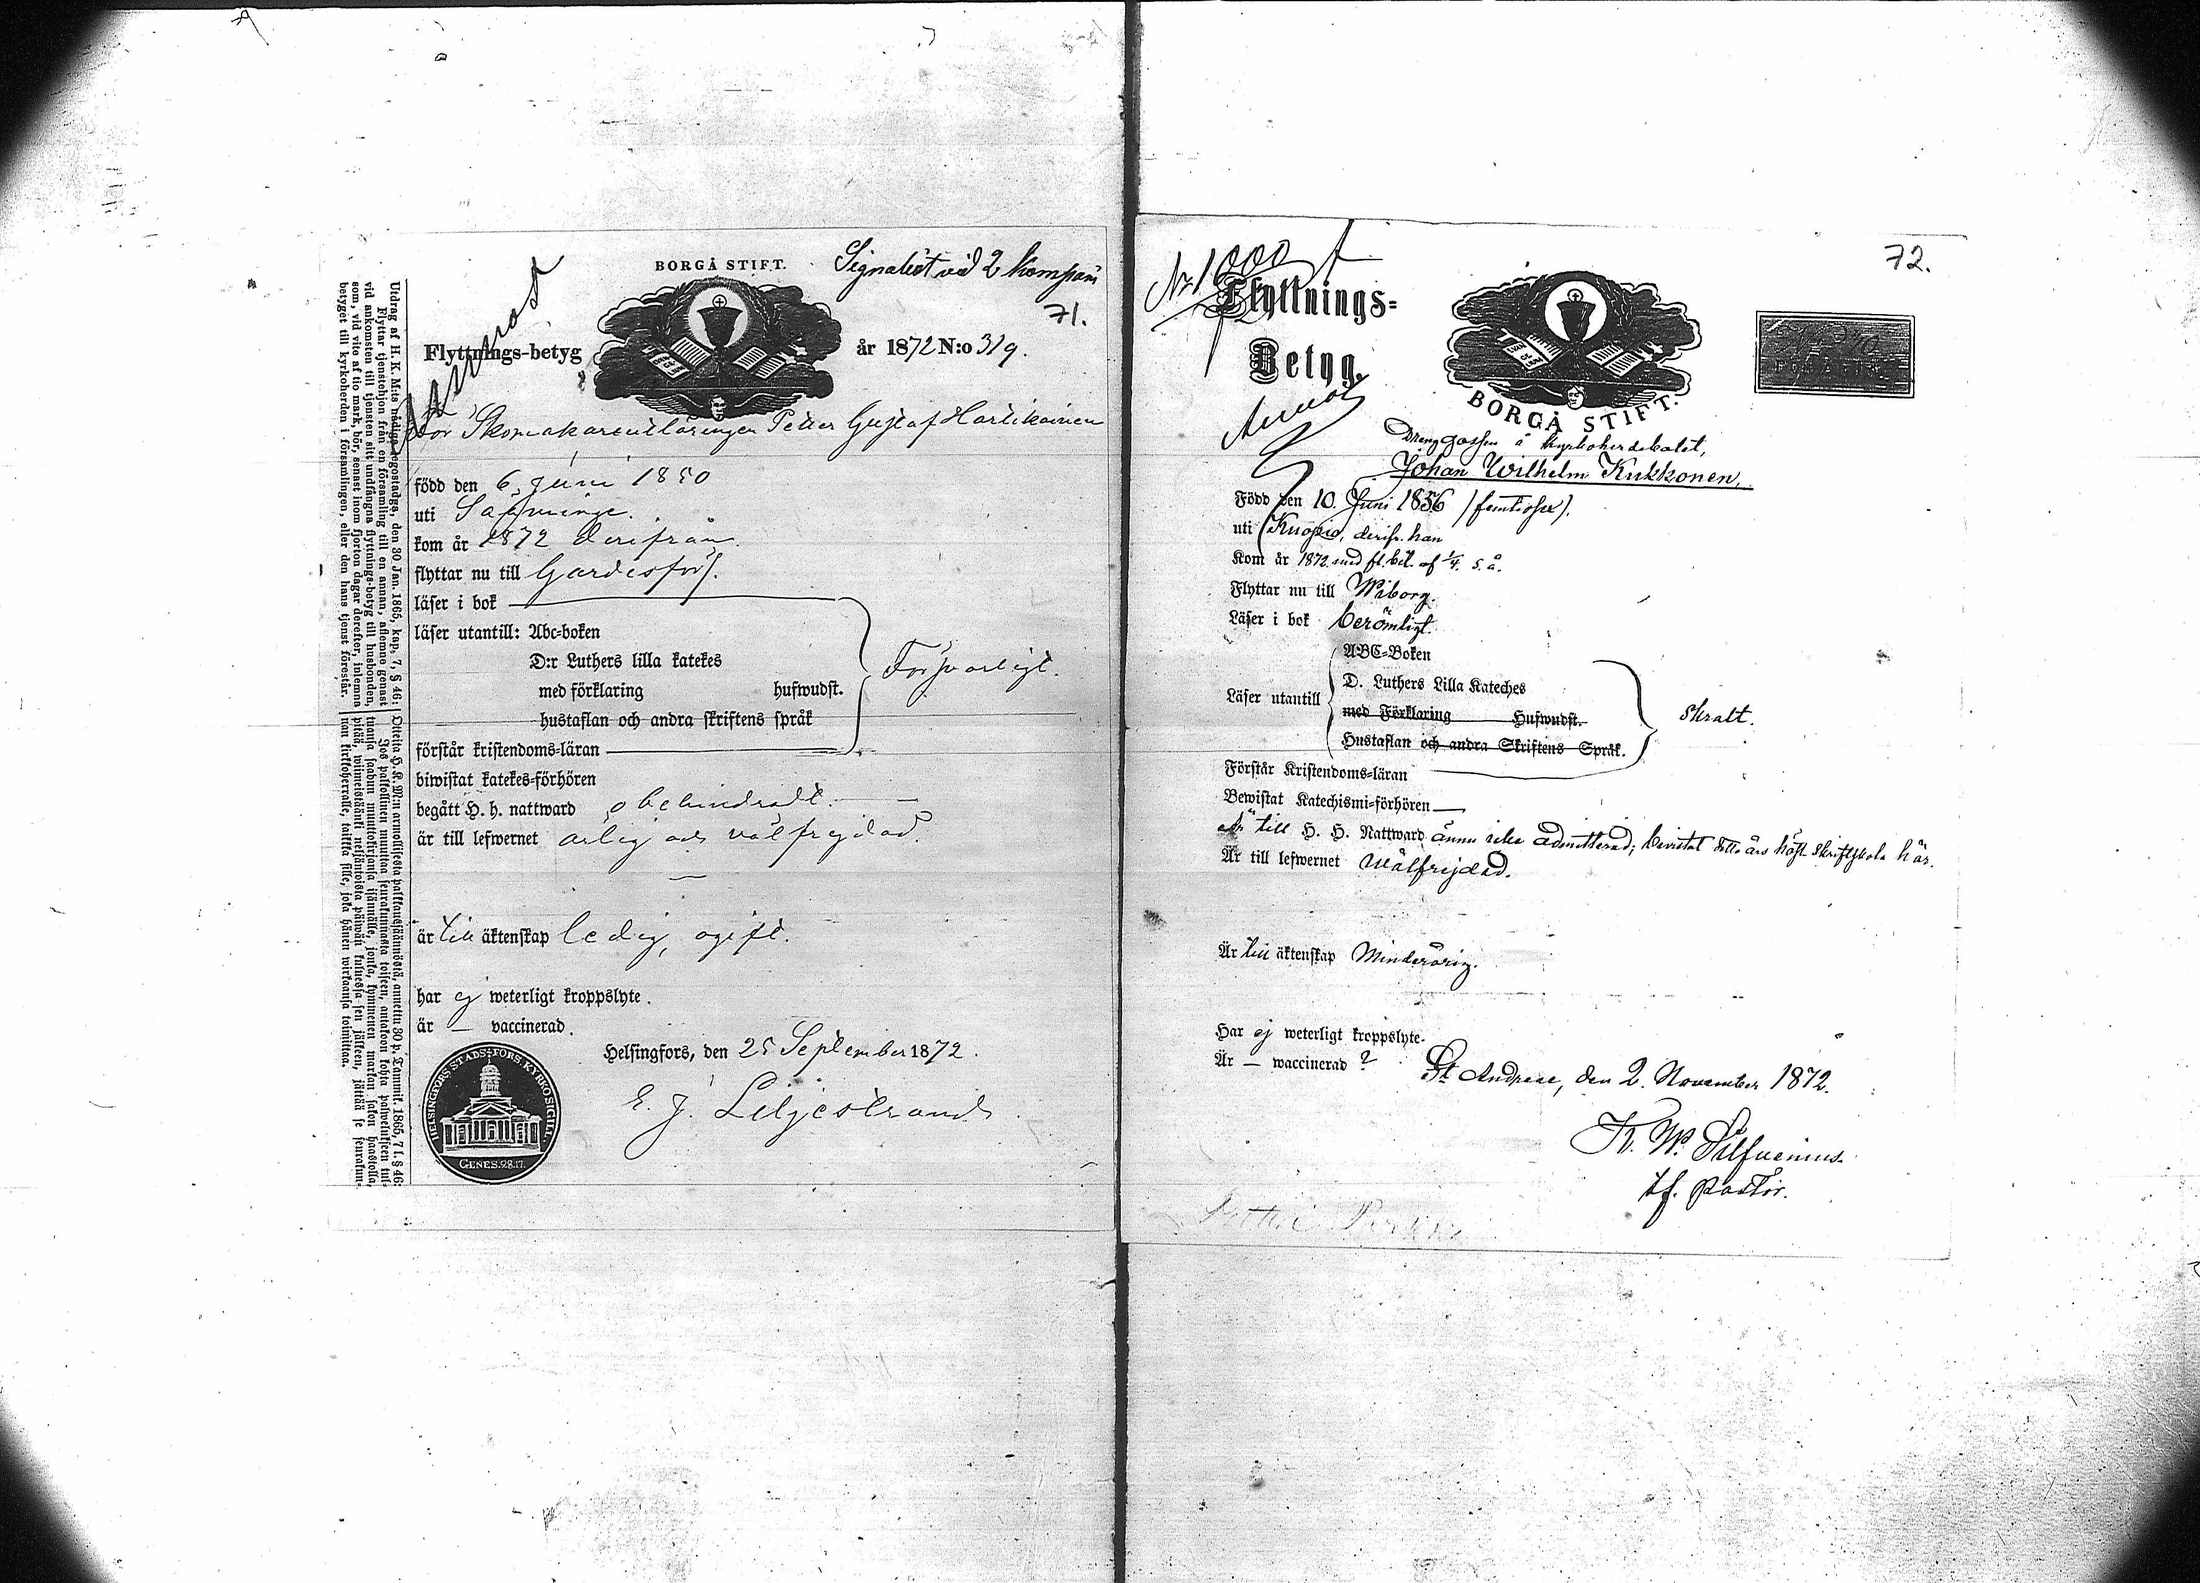 BORGÅ STIFT.
Signalist vid 2 Kompani
71.
Flyttnings-betyg
år 1872 N:o 319.
för Skomakareutläringen Petter Gustaf Hartikainen
född den 6 Juni 1850
uti Sääminge.
kom år 1872 derifrån
flyttar nu till Gardesförs.
läser i bok
läser utantill: Abc-boken
D:r Luthers lilla katekes
med förklaring hufwudst.
hustaflan och andra skriftens språk
Försvarligt.
förstår kristendoms-läran
biwistat katekes-förhören
begått H. h. nattward obehindradt.
är till lefwernet ärlig och välfrejdad.
är till äktenskap ledig, ogift.
har ej weterligt kroppslyte.
är — vaccinerad.
Helsingfors, den 25 September 1872.
E. J. Liljestrand
HELSINGFORS STADS-FÖRS. KYRKOSIGILL.
GENES. 28.17.
Utdrag af H. K. M:ts nådiga legostadga, den 30 Jan. 1865, kap. 7, § 46:
Flyttar tjenstehjon från en församling till en annan, aflemne genast
vid ankomsten till tjensten sitt undfångna flyttnings-betyg till husbonden,
som, vid vite af tio mark, bör, senast inom fjorton dagar derefter, inlemna
betyget till kyrkoherden i församlingen, eller den hans tjenst förestår.
Otteita H. K. M:n armollisesta palkkaussäännöstä, annettu 30 p. Tammik. 1865, 7 l. § 46:
Jos palkollinen muuttaa seurakunnasta toiseen, antakoon kohta palwelukseen tul-
tuansa saadun muuttokirjansa isännälle, jonka, kymmenen markan sakon haastolla
pitää, wiimeistäänki neljäntoista päiwän kuluessa sen jälkeen, jättää se seurakun-
nan kirkkoherralle, taikka sille, joka hänen wirkaansa toimittaa.
72.
Nr 1000
Flyttnings-
Betyg.
BORGÅ STIFT.
Drenggossen å Kyrkoherdebolet,
Johan Wilhelm Kukkonen,
Född den 10. Juni 1856 (femtiosex).
uti Kuopio, derifr. han
Kom år 1872 med fl. bet. af 1/4. s. å.
Flyttar nu till Wiborg.
Läser i bok berömligt.
Läser utantill
ABC-Boken
D. Luthers Lilla Kateches
med Förklaring Hufwudst.
Hustaflan och andra Skriftens Språk.
Skralt.
Förstår Kristendoms-läran
Bewistat Katechismi-förhören —
är till H. H. Nattward ännu icke admitterad; bevistat detta års höst skriftskola här.
Är till lefwernet wälfrejdad.
Är till äktenskap Minderårig.
Har ej weterligt kroppslyte.
Är — waccinerad?
St Andreae, den 2. November 1872.
K. W. Silfvenius
tf. pastor.